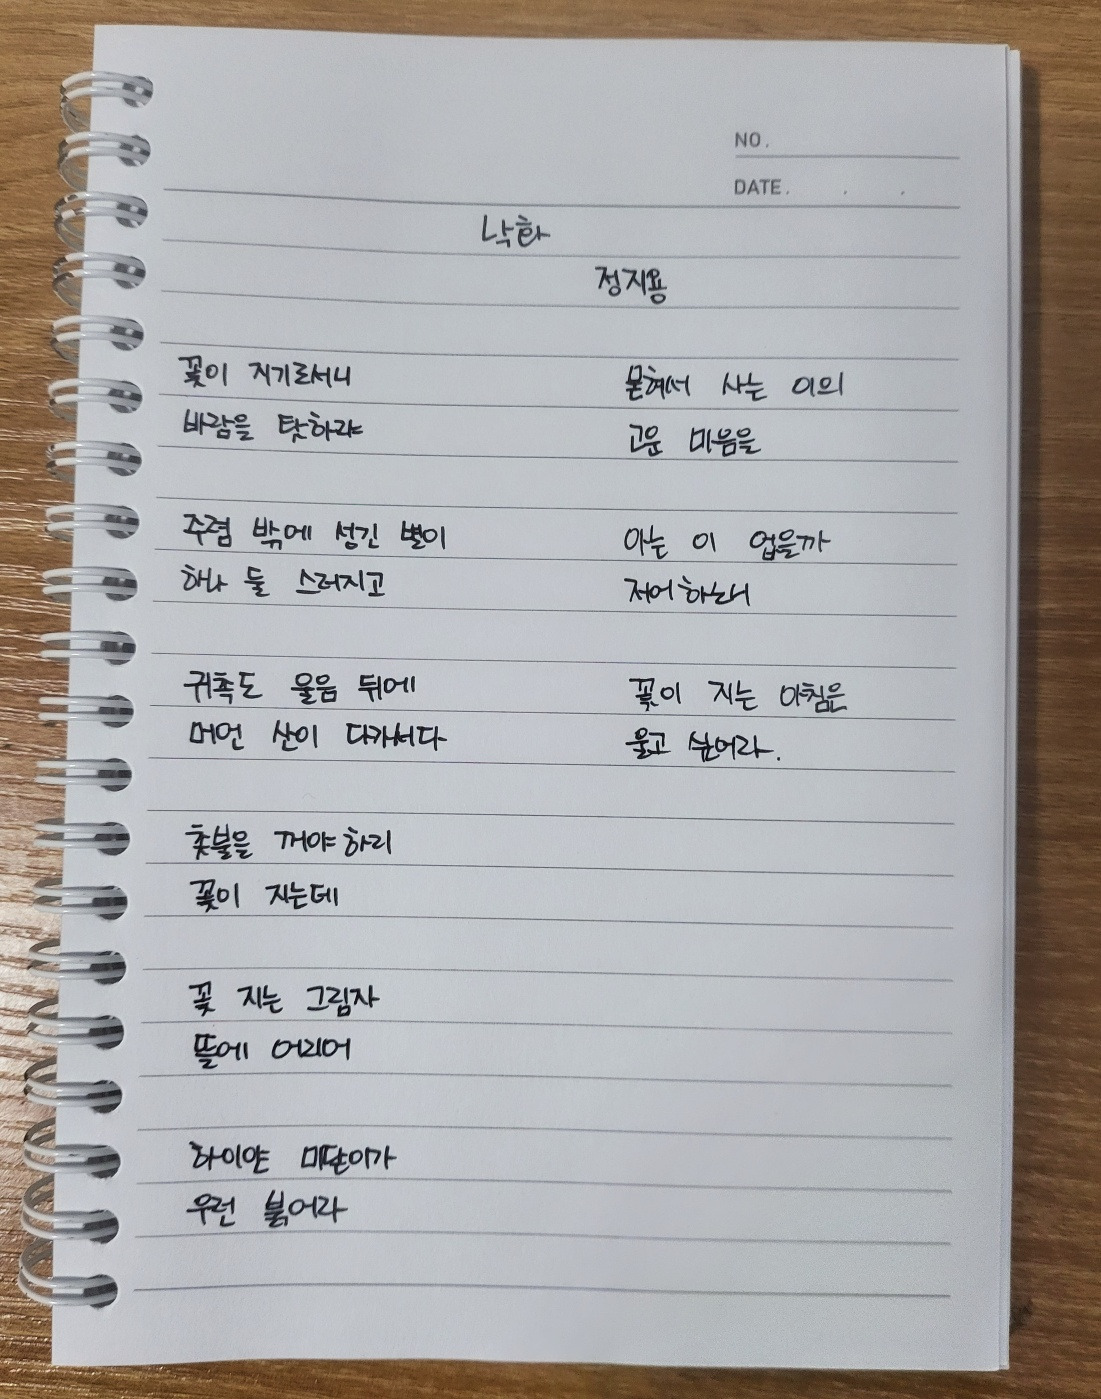 NO.
DATE.
낙화
정지용
꽃이 지기로서니
바람을 탓하랴
주렴 밖에 성긴 별이
하나 둘 스러지고
귀촉도 울음 뒤에
머언 산이 다가서다
촛불을 꺼야하리
꽃이 지는데
꽃 지는 그림자
뜰에 어리어
하이얀 미닫이가
우련 붉어라
묻혀서 사는 이의
고운 마음을
아는 이 없을까
저어하노니
꽃이 지는 아침은
울고 싶어라.